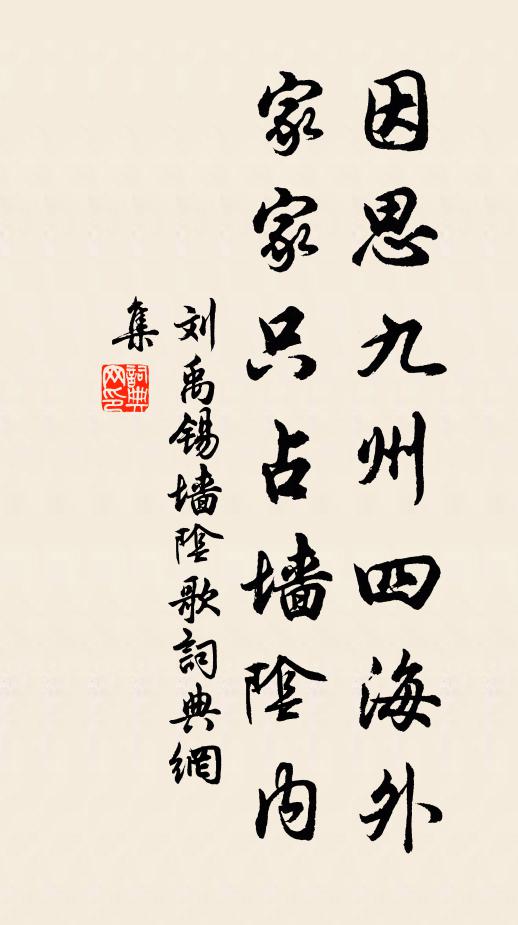 因思九州四海外
家家只占墙陰内
刘禹锡墙陰歌詞典網
集
詞典
网印